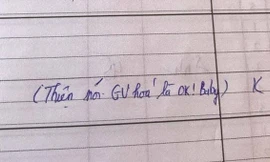 (Thiên nói GV hoá là OK! Baby) K